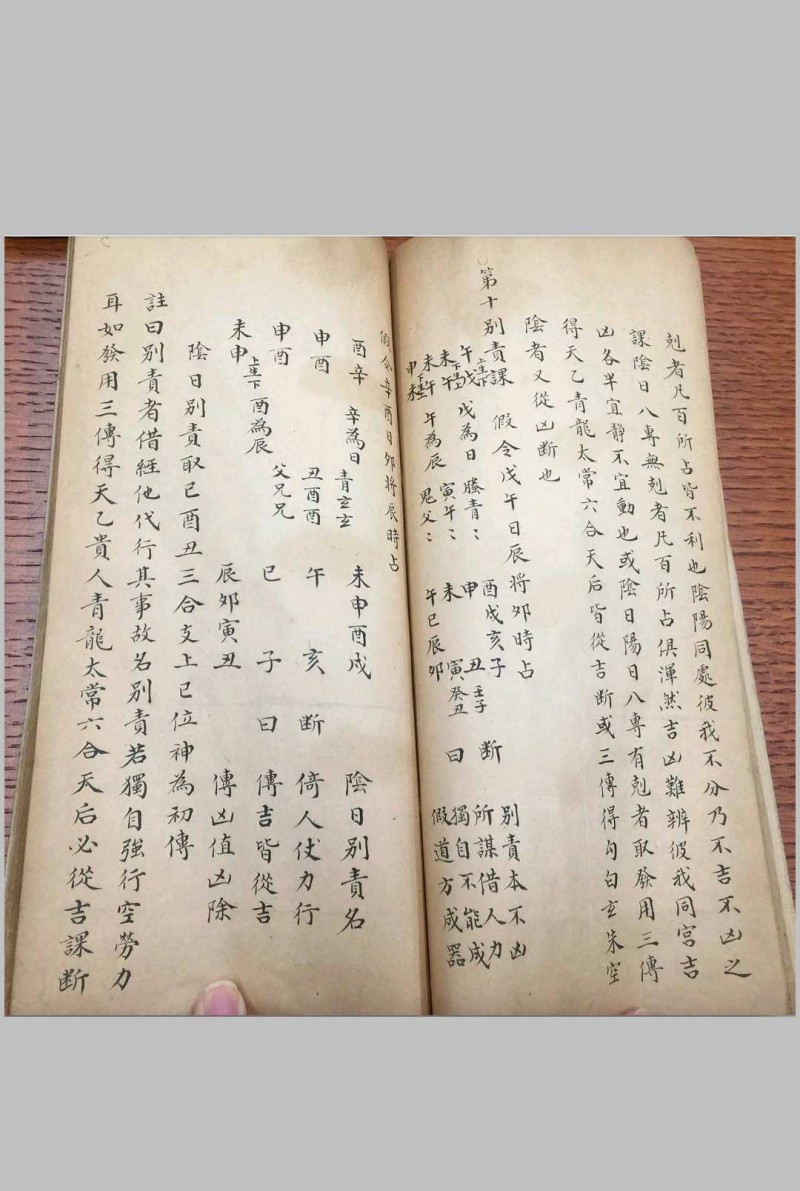 剋者凡百所占皆不利也陰陽同處彼我不分乃不吉不凶之
課陰日八專無剋者凡百所占俱渾然吉凶難辨彼我同宮吉
凶各半宜靜不宜動也或陰日陽日八專有剋者取發用三傳
得天乙青龍太常六合天后皆從吉斷或三傳得勾白玄朱空
陰者又從凶斷也
第十別責課 假令戊午日辰將夘時占
午戊 戊為日 螣青〻 酉戌亥子 断 別責本不凶
未午 寅午〻 申 丑 壬子 所謀借人力
未午 午為辰 鬼父〻 未 寅 癸丑 曰 獨自不能成
申未 午巳辰夘 假道方成器
假令辛酉日夘將辰時占
酉辛 辛為日 青玄玄 未申酉戌 陰日別責名
申酉 丑酉酉 午 亥 断 倚人仗力行
申酉 父兄兄 巳 子 曰 傳吉皆從吉
未申 上呈下 酉為辰 辰夘寅丑 傳凶值凶除
陰日別責取巳酉丑三合支上巳位神為初傳
註曰別責者借經他代行其事故名別責若獨自強行空勞力
耳如發用三傳得天乙貴人青龍太常六合天后必從吉課断